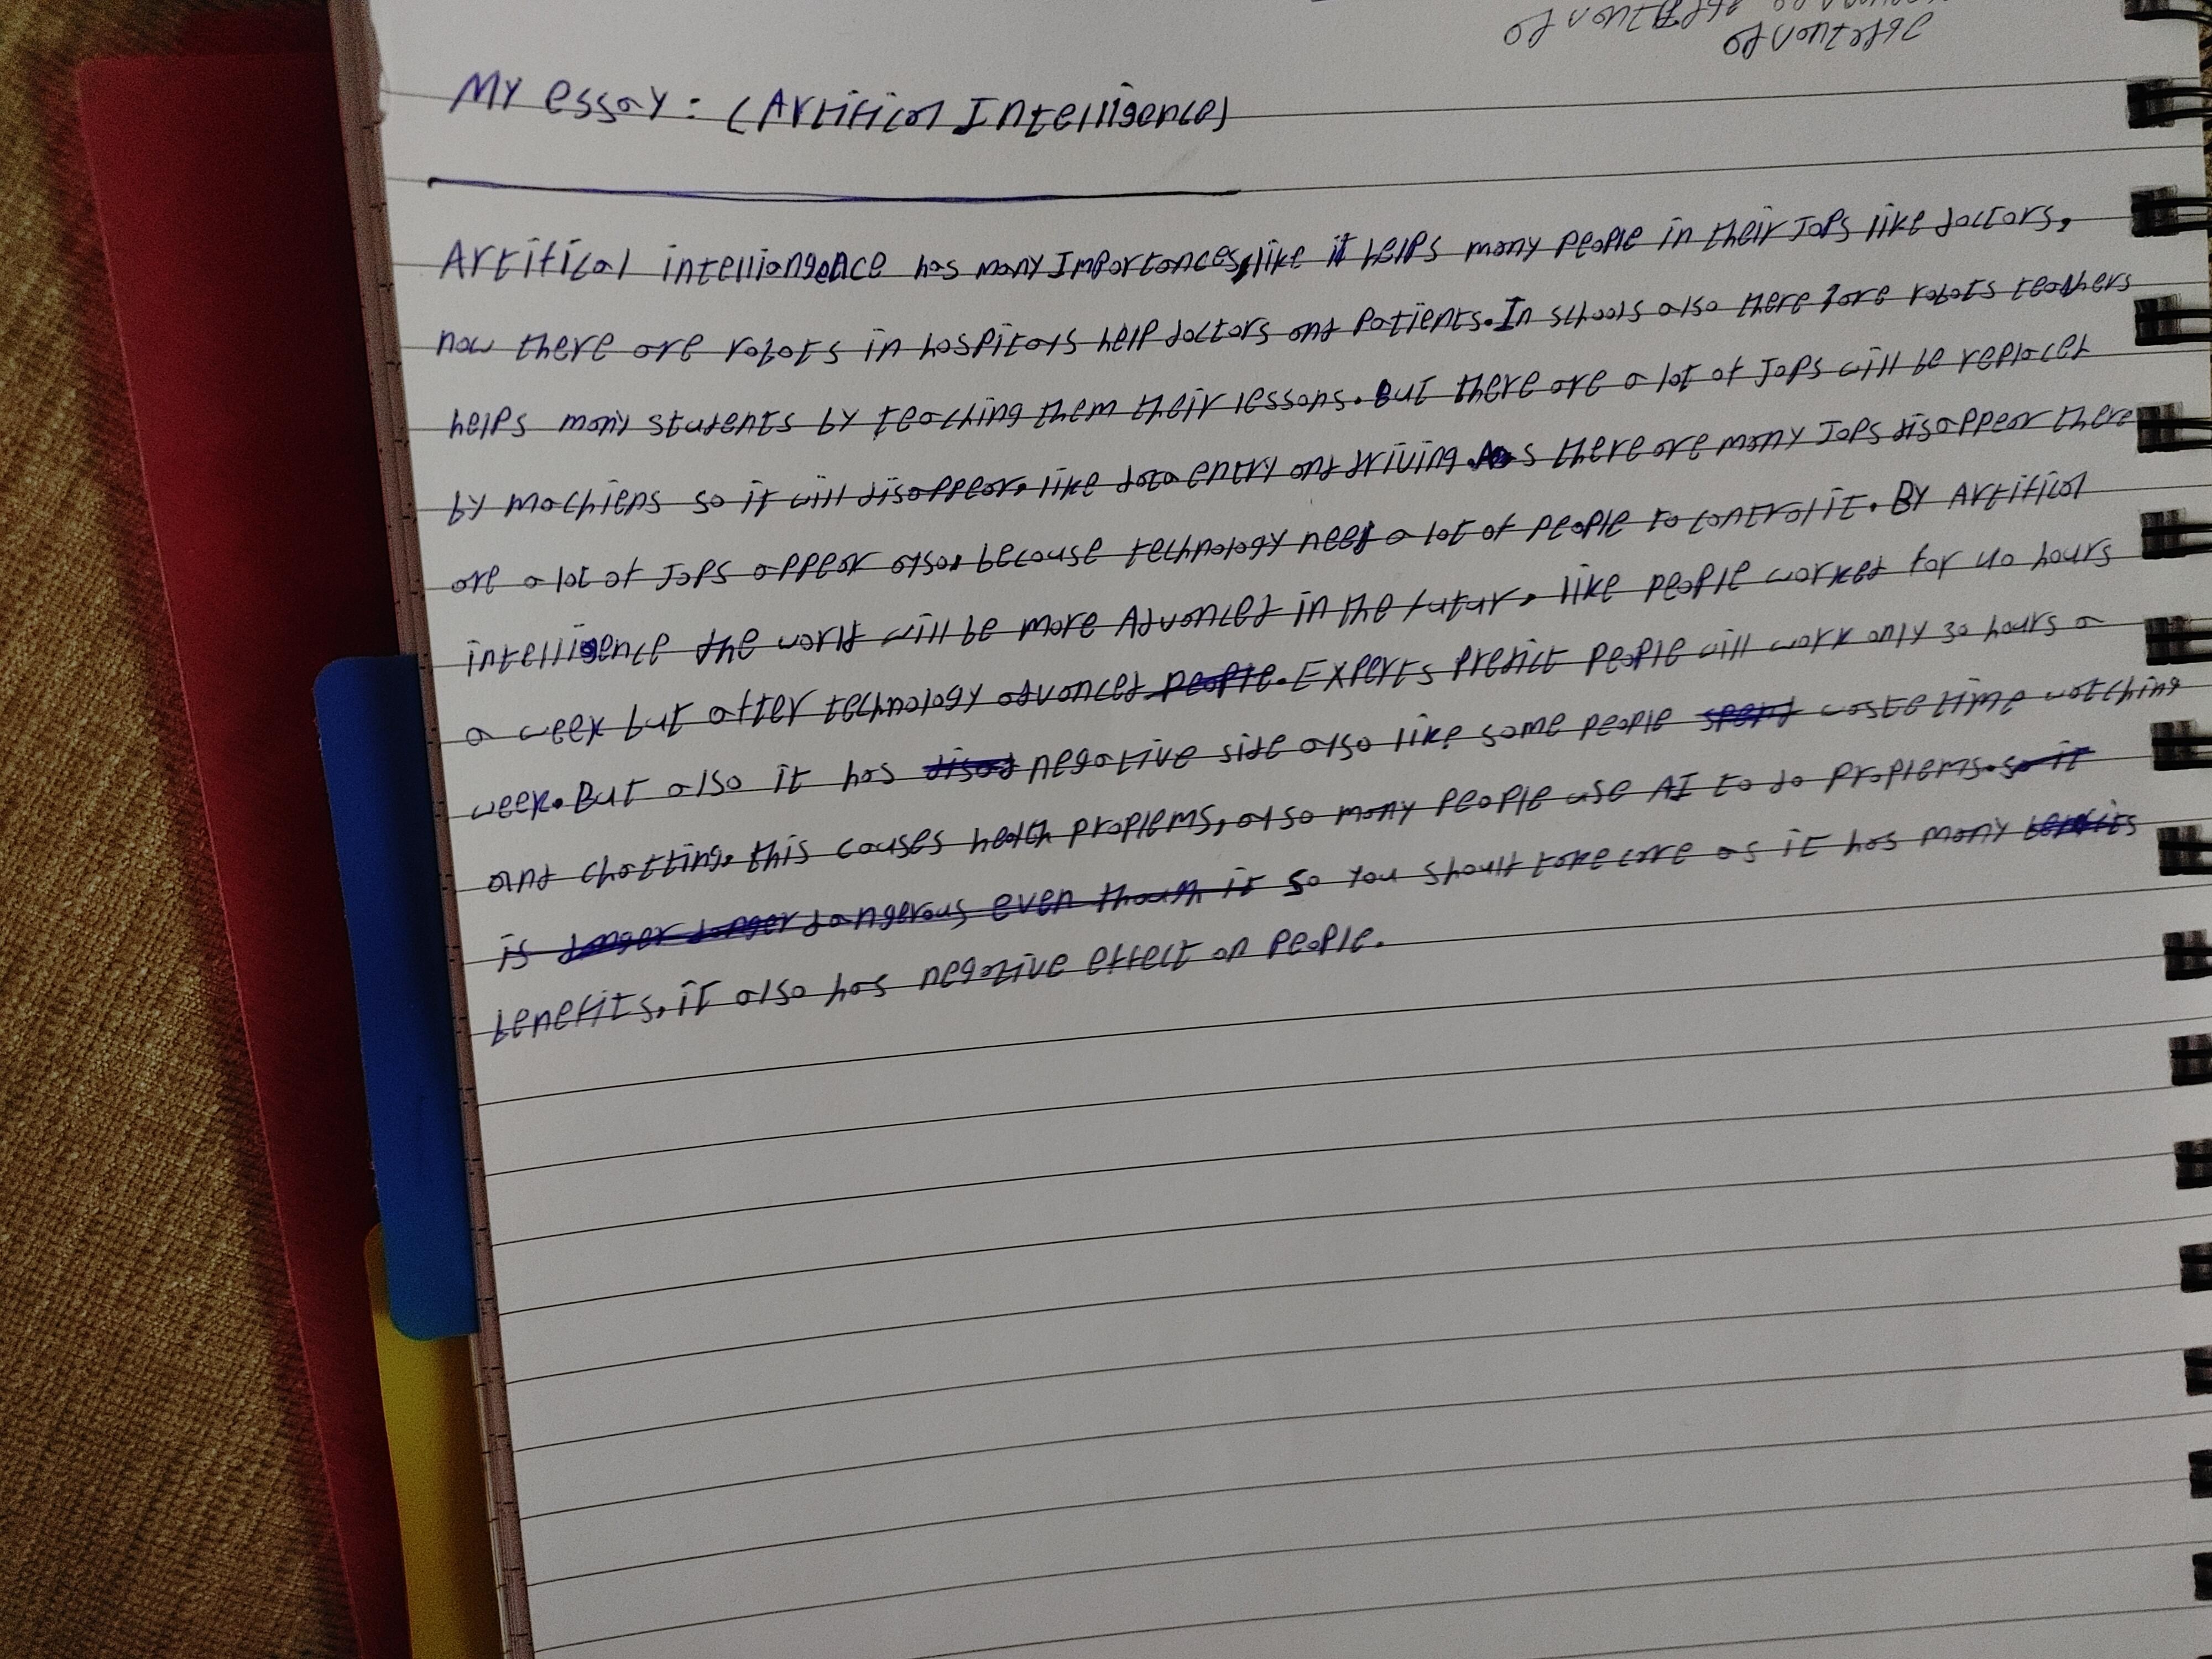 My essay: (Artificial Intelligence)
Artifical intelliangence has many Importances, like it helps many people in their Jops like doctors,
now there are robots in hospitals help doctors and Patients. In schools also there are robots teachers
helps many students by teaching them their lessons. But there are a lot of Jops will be replaced
by machiens so it will disappear, like data entry and driving. As there are many Jops disappear there
are a lot of Jops appear also, because technology need a lot of people to control it. By Artificial
intelligence the world will be more Advanced in the futur, like people worked for 40 hours
a week but after technology advanced. Experts predict people will work only 30 hours a
week. But also it has negative side also like some people waste time watching
and chatting, this causes health proplems, also many people use AI to do proplems.
so you should take care as it has many
benefits, it also has negative effect on people.